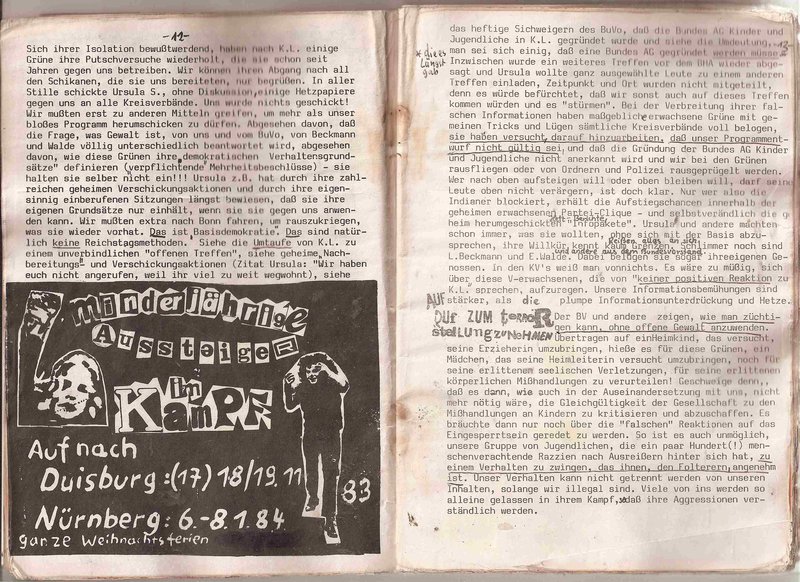 -12-
Sich ihrer Isolation bewußtwerdend, haben nach K.L. einige
Grüne ihre Putschversuche wiederholt, die sie schon seit
Jahren gegen uns betreiben. Wir können ihren Abgang nach all
den Schikanen, die sie uns bereiteten, nur begrüßen. In aller
Stille schickte Ursula S., ohne Diskussion, einige Hetzpapiere
gegen uns an alle Kreisverbände. Uns wurde nichts geschickt!
Wir mußten erst zu anderen Mitteln greifen, um mehr als unser
bloßes Programm herumschicken zu dürfen. Abgesehen davon, daß
die Frage, was Gewalt ist, von uns und vom BuVo, von Beckmann
und Walde völlig unterschiedlich beantwortet wird, abgesehen
davon, wie diese Grünen ihre "demokratischen Verhaltensgrund-
sätze" definieren (verpflichtende Mehrheitsbeschlüsse) - sie
halten sie selber nicht ein!!! Ursula z.B. hat durch ihre zahl-
reichen geheimen Verschickungsaktionen und durch ihre eigen-
sinnig einberufenen Sitzungen längst bewiesen, daß sie ihre
eigenen Grundsätze nur einhält, wenn sie sie gegen uns anwen-
den kann. Wir mußten extra nach Bonn fahren, um rauszukriegen,
was sie wieder vorhat. Das ist "Basisdemokratie". Das sind natür-
lich keine Reichstagsmethoden. Siehe die Umtaufe von K.L. zu
einem unverbindlichen "offenen Treffen", siehe geheime "Nach-
bereitungs- und Verschickungsaktionen (Zitat Ursula: "Wir haben
euch nicht angerufen, weil ihr viel zu weit wegwohnt), siehe
minderjährige
Aussteiger
im
Kampf
Auf nach
Duisburg: (17) 18/19.11
83
Nürnberg: 6.-8.1.84
ganze Weihnachtsferien
13-
das heftige Sichweigern des BuVo, daß die Bundes AG Kinder und
Jugendliche in K.L. gegründet wurde und siehe die Umdeutung,
* die es
längst
gab
man sei sich einig, daß eine Bundes AG gegründet werden müsse*
Inzwischen wurde ein weiteres Treffen vor dem BHA wieder abge-
sagt und Ursula wollte ganz ausgewählte Leute zu einem anderen
Treffen einladen, Zeitpunkt und Ort wurden nicht mitgeteilt,
denn es würde befürchtet, daß wir sonst auch auf dieses Treffen
kommen würden und es "stürmen". Bei der Verbreitung ihrer fal-
schen Informationen haben maßgeblich erwachsene Grüne mit ge-
meinen Tricks und Lügen sämtliche Kreisverbände voll belogen,
sie haben versucht darauf hinzuarbeiten, daß unser Programment-
wurf nicht gültig sei, und daß die Gründung der Bundes AG Kinder
und Jugendliche nicht anerkannt wird und wir bei den Grünen
rausfliegen oder von Ordnern und Polizei rausgeprügelt werden.
Wer nach oben aufsteigen will oder oben bleiben will, darf seine
Leute oben nicht verärgern, ist doch klar. Nur wer also die
Indianer blockiert, erhält die Aufstiegschancen innerhalb der
geheimen erwachsenen Partei-Clique - und selbstverständlich die ge-
heim herumgeschickten "Infopakete". Ursula und andere machten
schon immer, was sie wollten, ohne sich mit der Basis abzu-
reißen alles an sich.
sprechen, ihre Willkür kennt kaum Grenzen. Schlimmer noch sind
und andere aus dem Bundesvorstand.
L.Beckmann und E.Walde. Dabei belügen sie sogar ihre eigenen Ge-
nossen. In den KV's weiß man von nichts. Es wäre zu müßig, sich
über diese V-erwachsenen, die von "keiner positiven Reaktion zu
K.L." sprechen, aufzuregen. Unsere Informationsbemühungen sind
stärker, als die plumpe Informationsunterdrückung und Hetze.
AUF
DUF ZUM TERROR
stellungzunehmen
Der BV und andere zeigen, wie man züchti-
gen kann, ohne offene Gewalt anzuwenden.
Übertragen auf ein Heimkind, das versucht,
seine Erzieherin umzubringen, hieße es für diese Grünen, ein
Mädchen, das seine Heimleiterin versucht umzubringen, noch für
seine erlittenen seelischen Verletzungen, für seine erlittenen
körperlichen Mißhandlungen zu verurteilen! Geschweige denn,
daß es dann, wie auch in der Auseinandersetzung mit uns, nicht
mehr nötig wäre, die Gleichgültigkeit der Gesellschaft zu den
Mißhandlungen an Kindern zu kritisieren und abzuschaffen. Es
bräuchte dann nur noch über die "falschen" Reaktionen auf das
Eingesperrtsein geredet zu werden. So ist es auch unmöglich,
unsere Gruppe von Jugendlichen, die ein paar Hundert(!) men-
schenverachtende Razzien nach Ausreißern hinter sich hat, zu
einem Verhalten zu zwingen, das ihnen, den Folterern, angenehm
ist. Unser Verhalten kann nicht getrennt werden von unseren
Inhalten, solange wir illegal sind. Viele von uns werden so
alleine gelassen in ihrem Kampf, daß ihre Aggressionen ver-
ständlich werden.